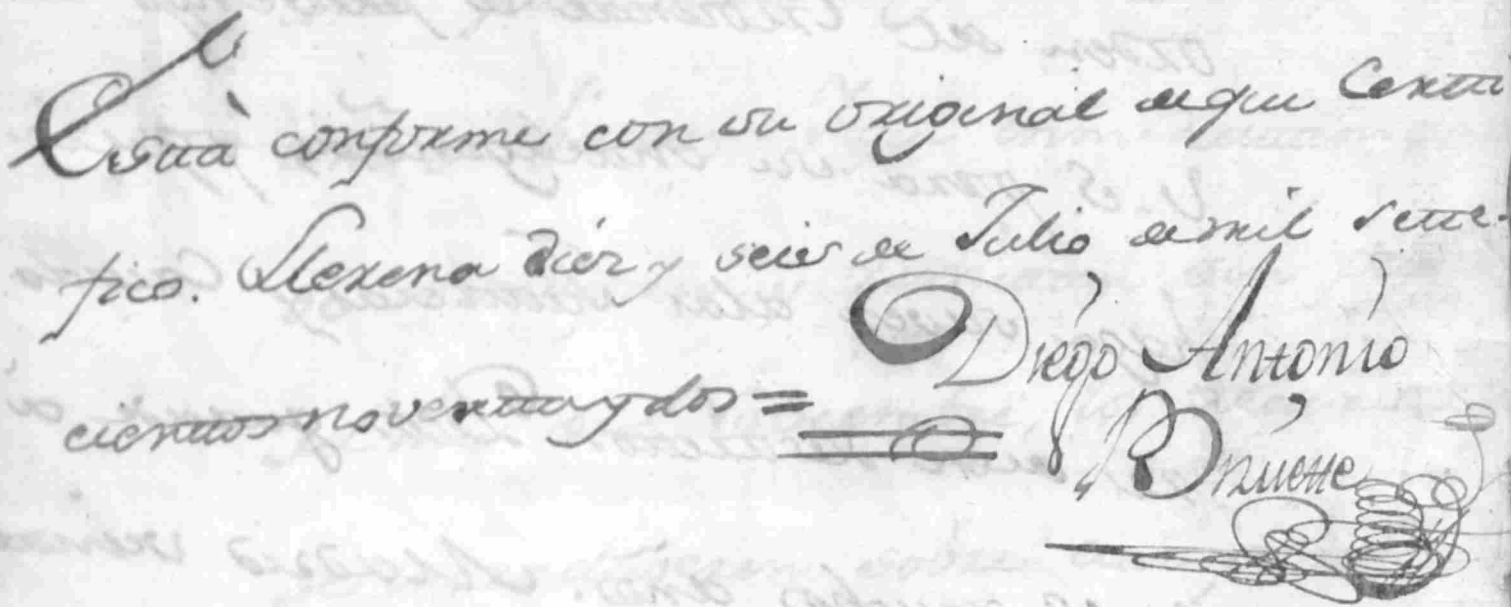 Està conforme con su original de que Certi
fico. Llerena diéz y seis de Julio de mil sette
cientos noventa y dos =
Diego Antonio